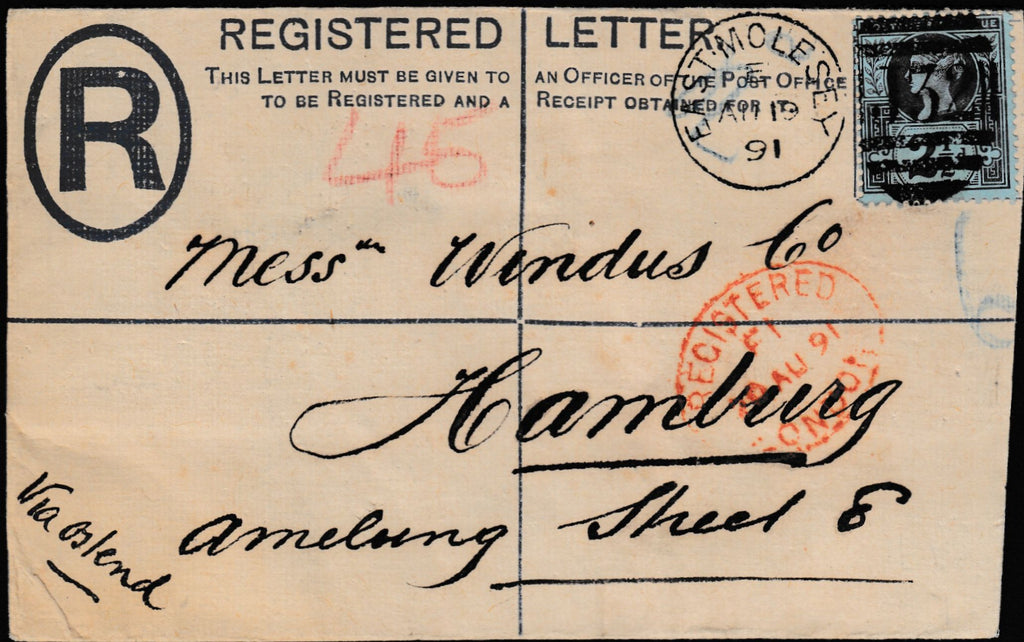 REGISTERED LETTER
THIS LETTER MUST BE GIVEN TO AN OFFICER OF THE POST OFFICE
TO BE REGISTERED AND A RECEIPT OBTAINED FOR IT.
R
45
EAST MOLESEY
AU 19
91
2½
Messrs Windus Co
REGISTERED
AU 91
LONDON
Hamburg
Amelung Street 8
Via Ostend